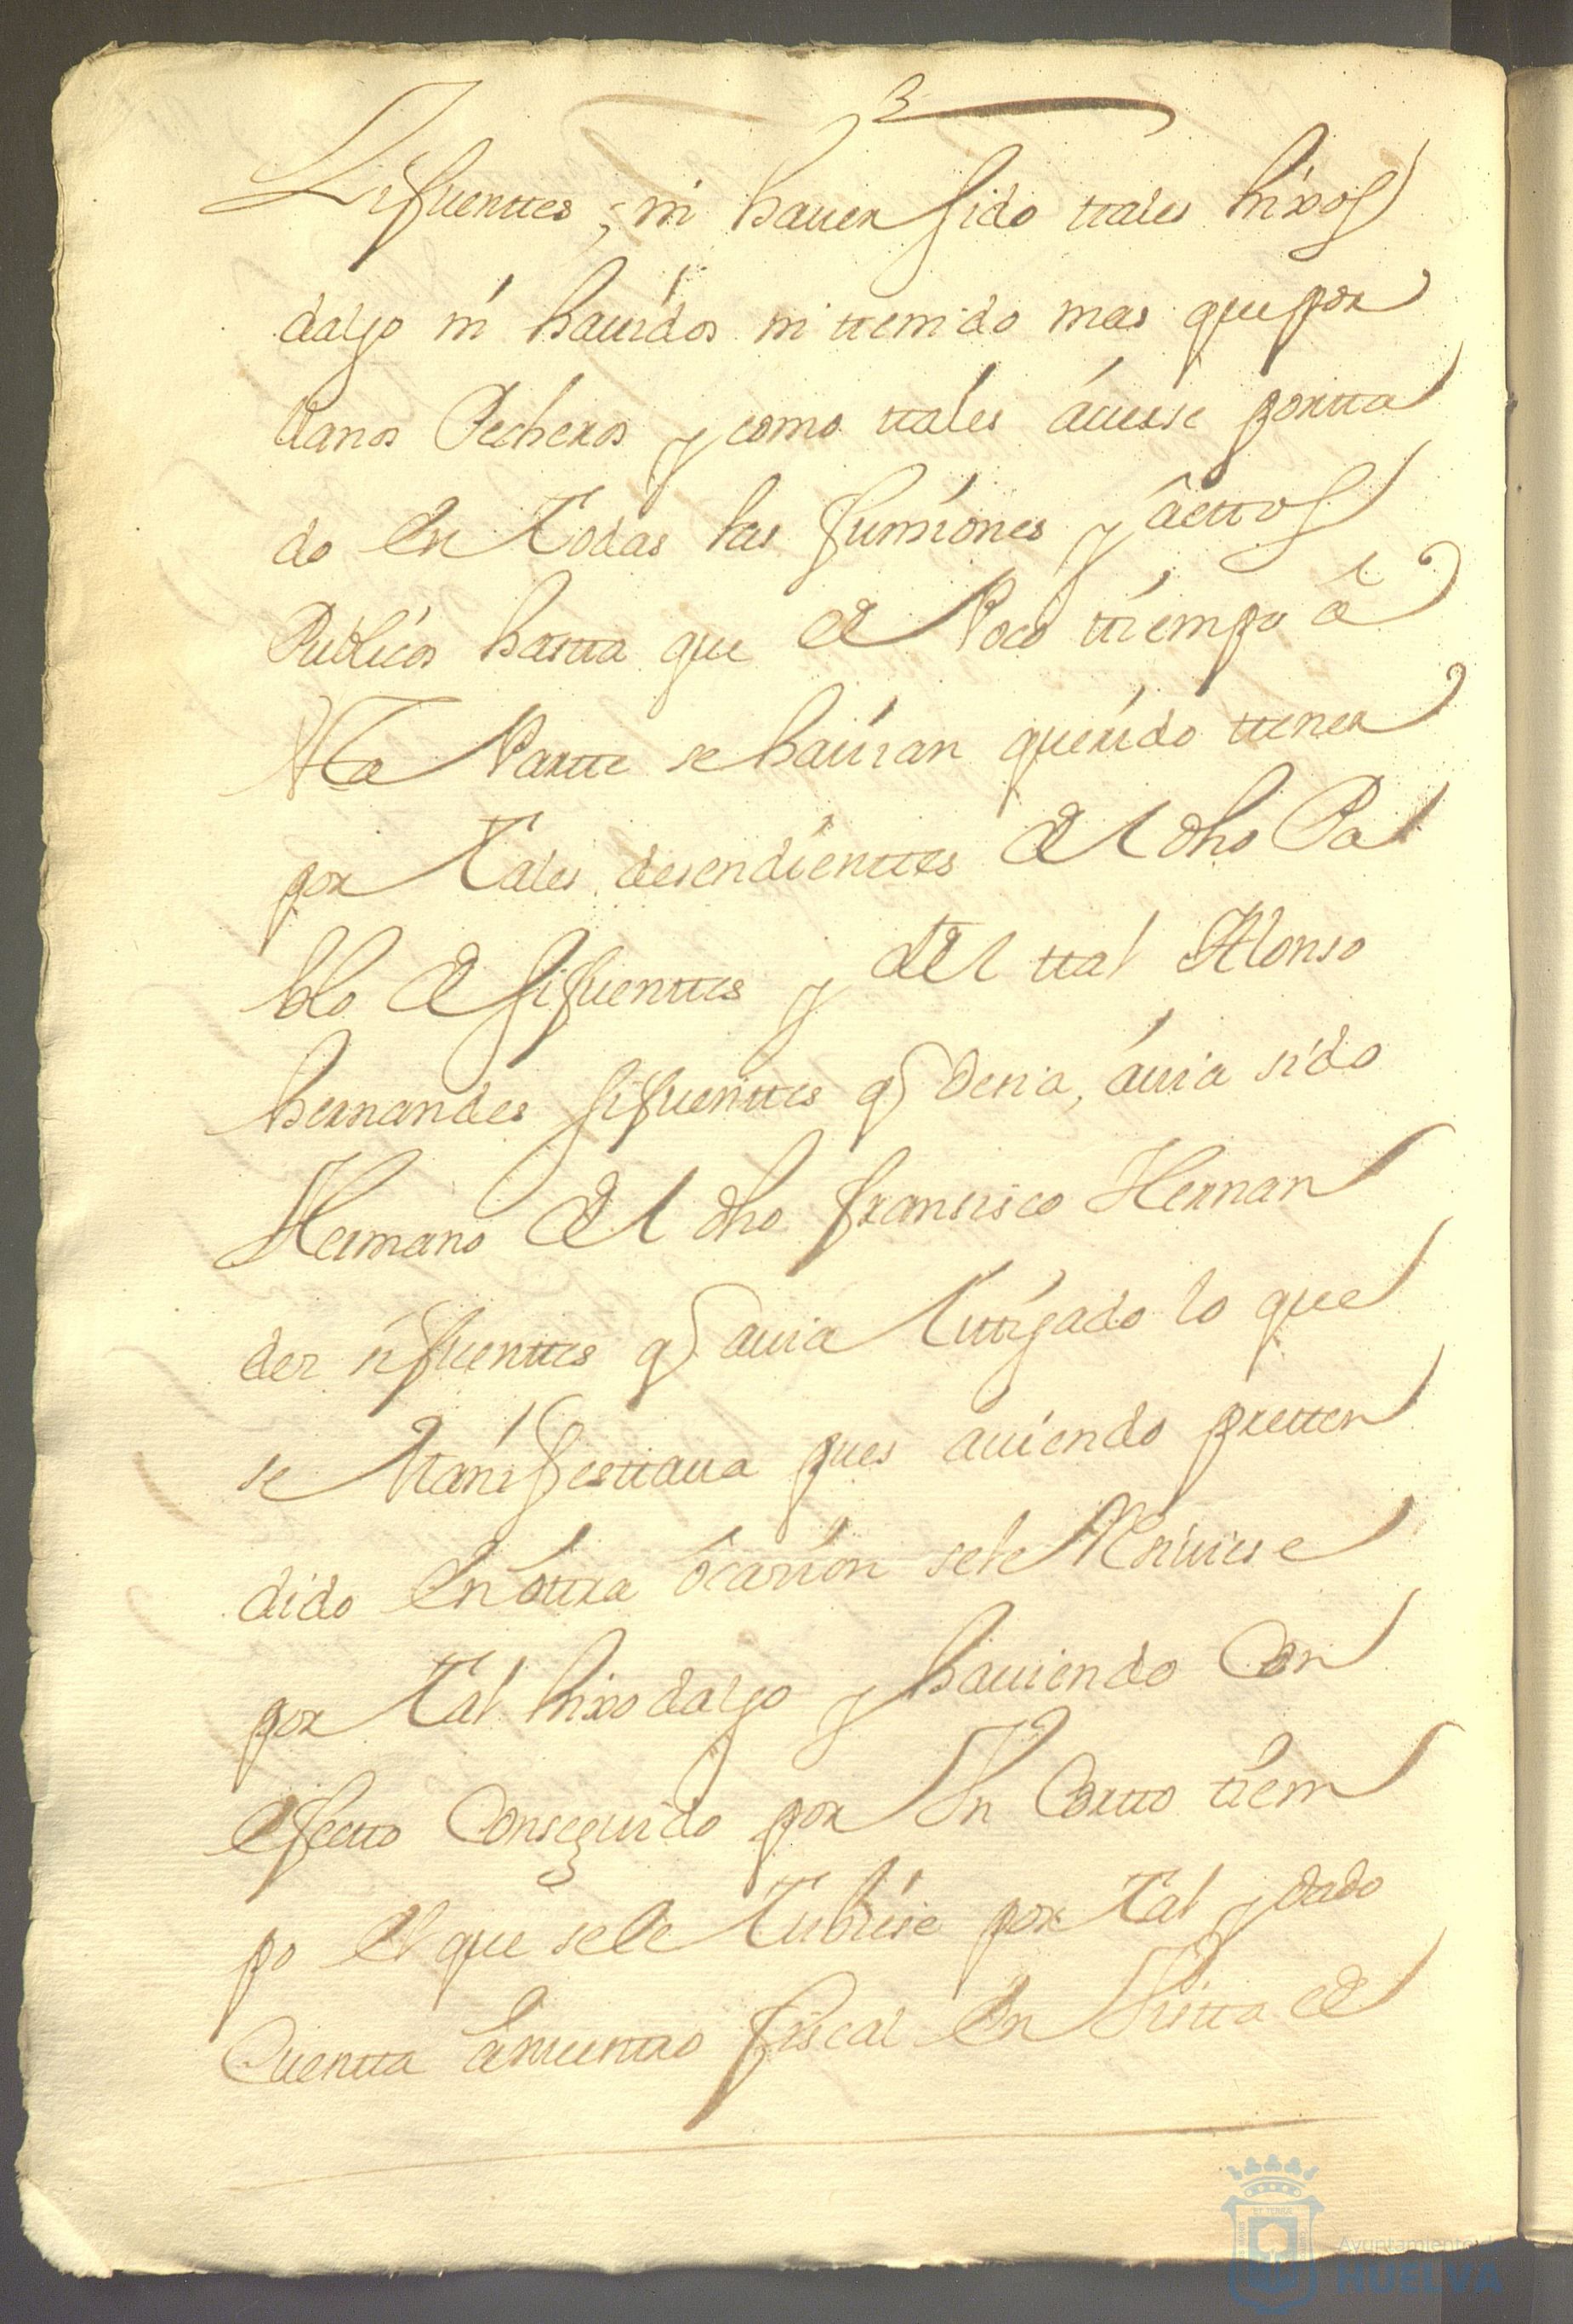 Sifuenttes, ni hauer sido ttales hixos
dalgo ni hauidos ni ttenido mas que por
llanos Pecheros y como ttales áuerse portta
do en Todas las funsiones y âcttos
Publicos hastta que de Poco ttiempo â
estta Partte se hauian querido ttener
por Tales desendienttes del dho Pa
blo de sifuenttes y del ttal Alonso
hernandes sifuenttes q desia, áuia sido
Hermano del dho fransisco Hernan
des sifuenttes q auia Littigado lo que
se Manifesttaua pues auiendo pretten
dido en óttra ôcasion sele Resiuiese
por Tal hixodalgo y hauiendo Con
efectto Conseguido por Un Cortto tiem
po el que sele Tubiese por Tal y dado
Cuentta â nuesttro fiscal en Vistta de
Ayuntamiento de
HUELVA